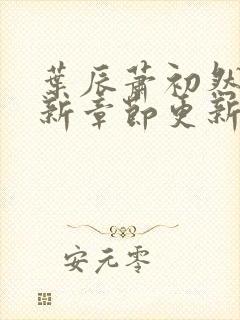 葉辰蕭初然
新章節更新
安元零